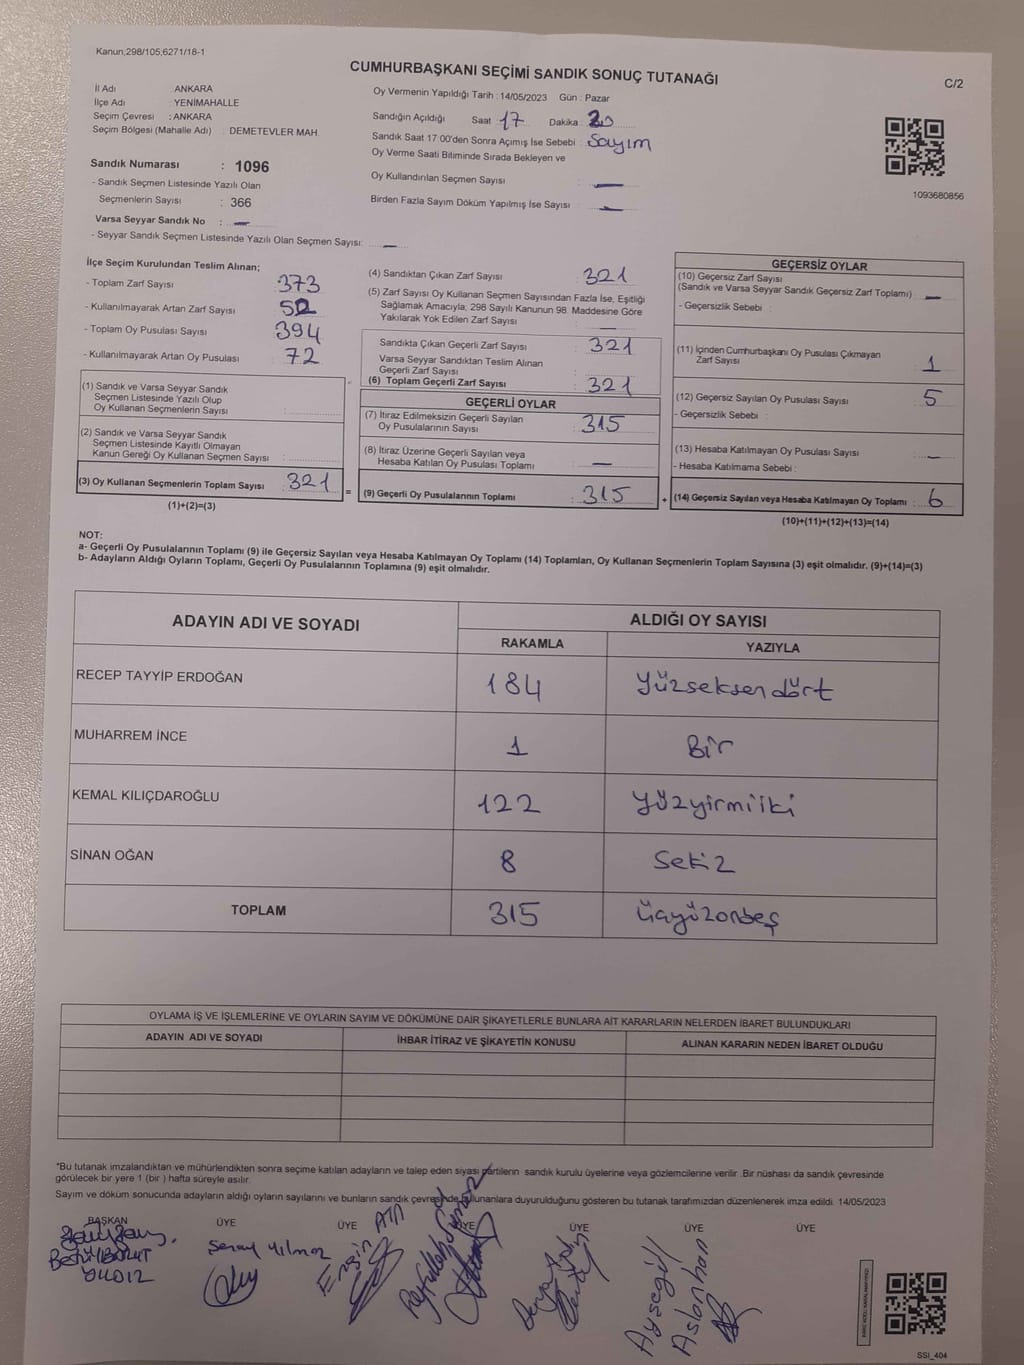 Kanun;298/105;6271/18-1
CUMHURBAŞKANI SEÇİMİ SANDIK SONUÇ TUTANAĞI
C/2
İl Adı : ANKARA
İlçe Adı : YENİMAHALLE
Seçim Çevresi : ANKARA
Seçim Bölgesi (Mahalle Adı) : DEMETEVLER MAH.
Oy Vermenin Yapıldığı Tarih : 14/05/2023 Gün : Pazar
Sandığın Açıldığı Saat : 17 Dakika : 20
Sandık Saat 17:00'den Sonra Açımış İse Sebebi : Sayım
Oy Verme Saati Bitiminde Sırada Bekleyen ve
Oy Kullandırılan Seçmen Sayısı : —
Birden Fazla Sayım Döküm Yapılmış İse Sayısı : —
1093680856
Sandık Numarası : 1096
- Sandık Seçmen Listesinde Yazılı Olan
Seçmenlerin Sayısı : 366
Varsa Seyyar Sandık No : —
- Seyyar Sandık Seçmen Listesinde Yazılı Olan Seçmen Sayısı: —
İlçe Seçim Kurulundan Teslim Alınan;
- Toplam Zarf Sayısı : 373
- Kullanılmayarak Artan Zarf Sayısı : 52
- Toplam Oy Pusulası Sayısı : 394
- Kullanılmayarak Artan Oy Pusulası : 72
(1) Sandık ve Varsa Seyyar Sandık
Seçmen Listesinde Yazılı Olup
Oy Kullanan Seçmenlerin Sayısı :
(2) Sandık ve Varsa Seyyar Sandık
Seçmen Listesinde Kayıtlı Olmayan
Kanun Gereği Oy Kullanan Seçmen Sayısı :
(3) Oy Kullanan Seçmenlerin Toplam Sayısı : 321
(1)+(2)=(3)
(4) Sandıktan Çıkan Zarf Sayısı : 321
(5) Zarf Sayısı Oy Kullanan Seçmen Sayısından Fazla İse, Eşitliği
Sağlamak Amacıyla, 298 Sayılı Kanunun 98. Maddesine Göre
Yakılarak Yok Edilen Zarf Sayısı :
Sandıkta Çıkan Geçerli Zarf Sayısı : 321
Varsa Seyyar Sandıktan Teslim Alınan
Geçerli Zarf Sayısı :
(6) Toplam Geçerli Zarf Sayısı : 321
GEÇERLİ OYLAR
(7) İtiraz Edilmeksizin Geçerli Sayılan
Oy Pusulalarının Sayısı : 315
(8) İtiraz Üzerine Geçerli Sayılan veya
Hesaba Katılan Oy Pusulası Toplamı : —
= (9) Geçerli Oy Pusulalarının Toplamı : 315
GEÇERSİZ OYLAR
(10) Geçersiz Zarf Sayısı
(Sandık ve Varsa Seyyar Sandık Geçersiz Zarf Toplamı) : —
- Geçersizlik Sebebi :
(11) İçinden Cumhurbaşkanı Oy Pusulası Çıkmayan
Zarf Sayısı : 1
(12) Geçersiz Sayılan Oy Pusulası Sayısı : 5
- Geçersizlik Sebebi :
(13) Hesaba Katılmayan Oy Pusulası Sayısı : —
- Hesaba Katılmama Sebebi :
+ (14) Geçersiz Sayılan veya Hesaba Katılmayan Oy Toplamı : 6
(10)+(11)+(12)+(13)=(14)
NOT:
a- Geçerli Oy Pusulalarının Toplamı (9) ile Geçersiz Sayılan veya Hesaba Katılmayan Oy Toplamı (14) Toplamları, Oy Kullanan Seçmenlerin Toplam Sayısına (3) eşit olmalıdır. (9)+(14)=(3)
b- Adayların Aldığı Oyların Toplamı, Geçerli Oy Pusulalarının Toplamına (9) eşit olmalıdır.
ADAYIN ADI VE SOYADI ALDIĞI OY SAYISI
RAKAMLA YAZIYLA
RECEP TAYYİP ERDOĞAN 184 Yüzseksendört
MUHARREM İNCE 1 Bir
KEMAL KILIÇDAROĞLU 122 Yüzyirmiiki
SİNAN OĞAN 8 Sekiz
TOPLAM 315 üçyüzonbeş
OYLAMA İŞ VE İŞLEMLERİNE VE OYLARIN SAYIM VE DÖKÜMÜNE DAİR ŞİKAYETLERLE BUNLARA AİT KARARLARIN NELERDEN İBARET BULUNDUKLARI
ADAYIN ADI VE SOYADI İHBAR İTİRAZ VE ŞİKAYETİN KONUSU ALINAN KARARIN NEDEN İBARET OLDUĞU
*Bu tutanak imzalandıktan ve mühürlendikten sonra seçime katılan adayların ve talep eden siyasi partilerin sandık kurulu üyelerine veya gözlemcilerine verilir .Bir nüshası da sandık çevresinde
görülecek bir yere 1 (bir ) hafta süreyle asılır.
Sayım ve döküm sonucunda adayların aldığı oyların sayılarını ve bunların sandık çevresinde bulunanlara duyurulduğunu gösteren bu tutanak tarafımızdan düzenlenerek imza edildi. 14/05/2023
BAŞKAN ÜYE ÜYE ÜYE ÜYE ÜYE ÜYE
YILDIZ
Senay Yılmaz
Engin ATA
Ayşegül
Aslanhan
SSI_404